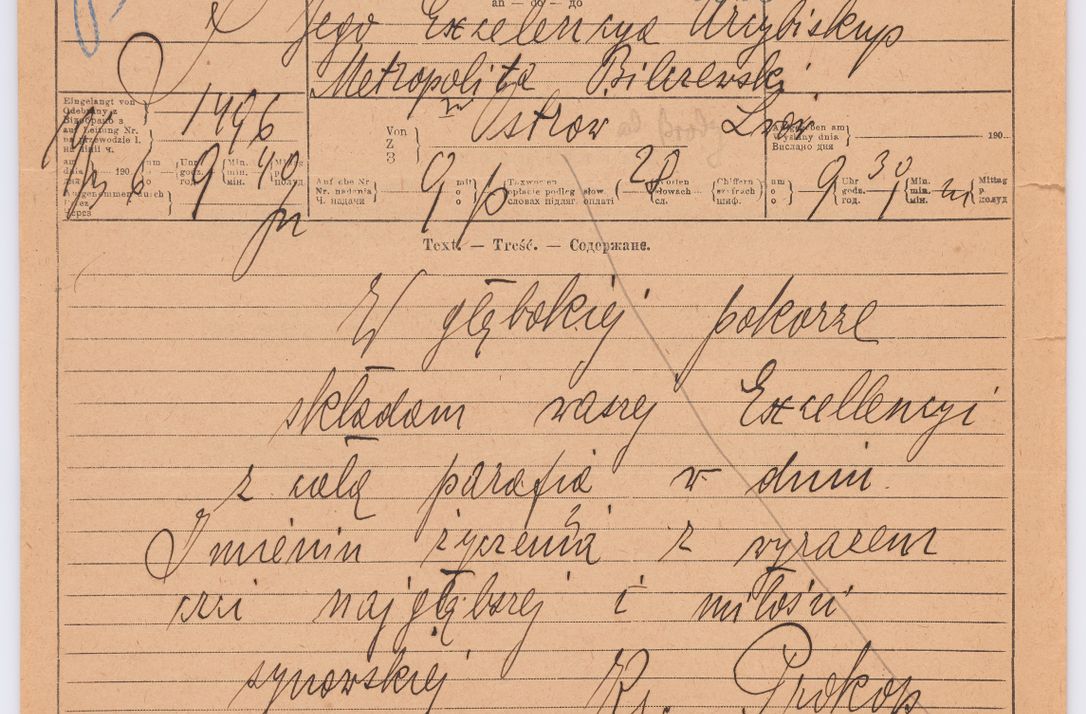 an — do — до
Jego Excelencya Arcybiskup
Metropolita Bilczewski
Eingelangt von
Odebrany z
auf Leitung Nr.
na przewodzie l.
на лінії ч.
1496
Von
Z
З
Ostrow
Lwow
Wysłany dnia
Вислано дня
190...
am
dnia
190
6
um
o
Uhr
godz.
год.
9
Min.
min.
мін.
40
Mittag
p.
полуд
Aufgenommen durch
przez
через
Aufgabe Nr.
Nr. nadania
Ч. надачи
9
mit
o
о
Taxworten
opłacie podleg. słow.
словах підляг. оплаті
28
Worten
słowach
сл.
Chiffern
szyfrach
шиф.
um
o
о
9
Uhr
godz.
год.
30
Min.
min.
мін.
Mittag
p.
полуд
Text. — Treść. — Содержане.
W głębokiej pokorze
składam waszej Excellencyi
z całą parafią w dniu
Imienin życzenia z wyrazem
czci najgłębszej i miłości
synowskiej Ks. Prokop